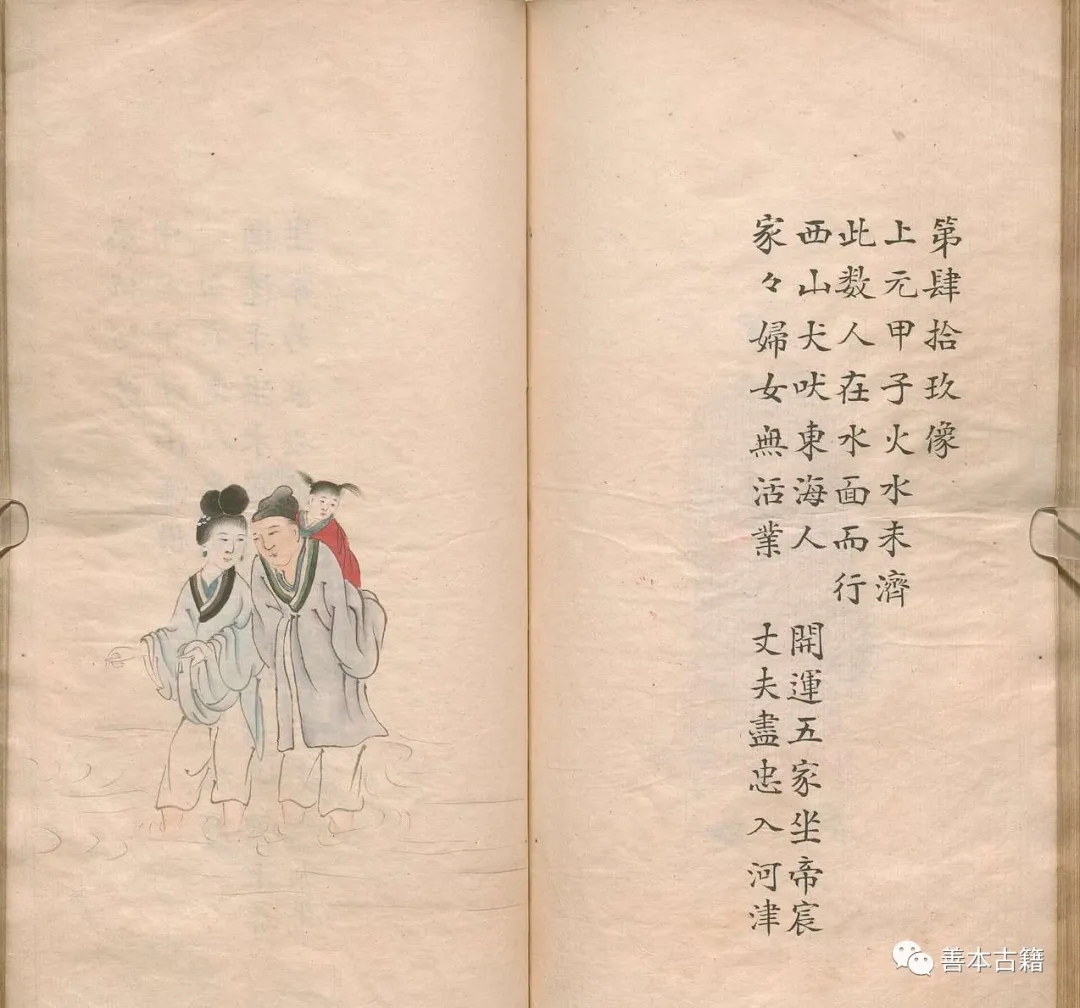 第肆拾玖像
上元甲子火水未濟
此数人在水面而行
西山犬吠東海人 開運五家坐帝宸
家々婦女無活業 丈夫盡忠入河津
善本古籍